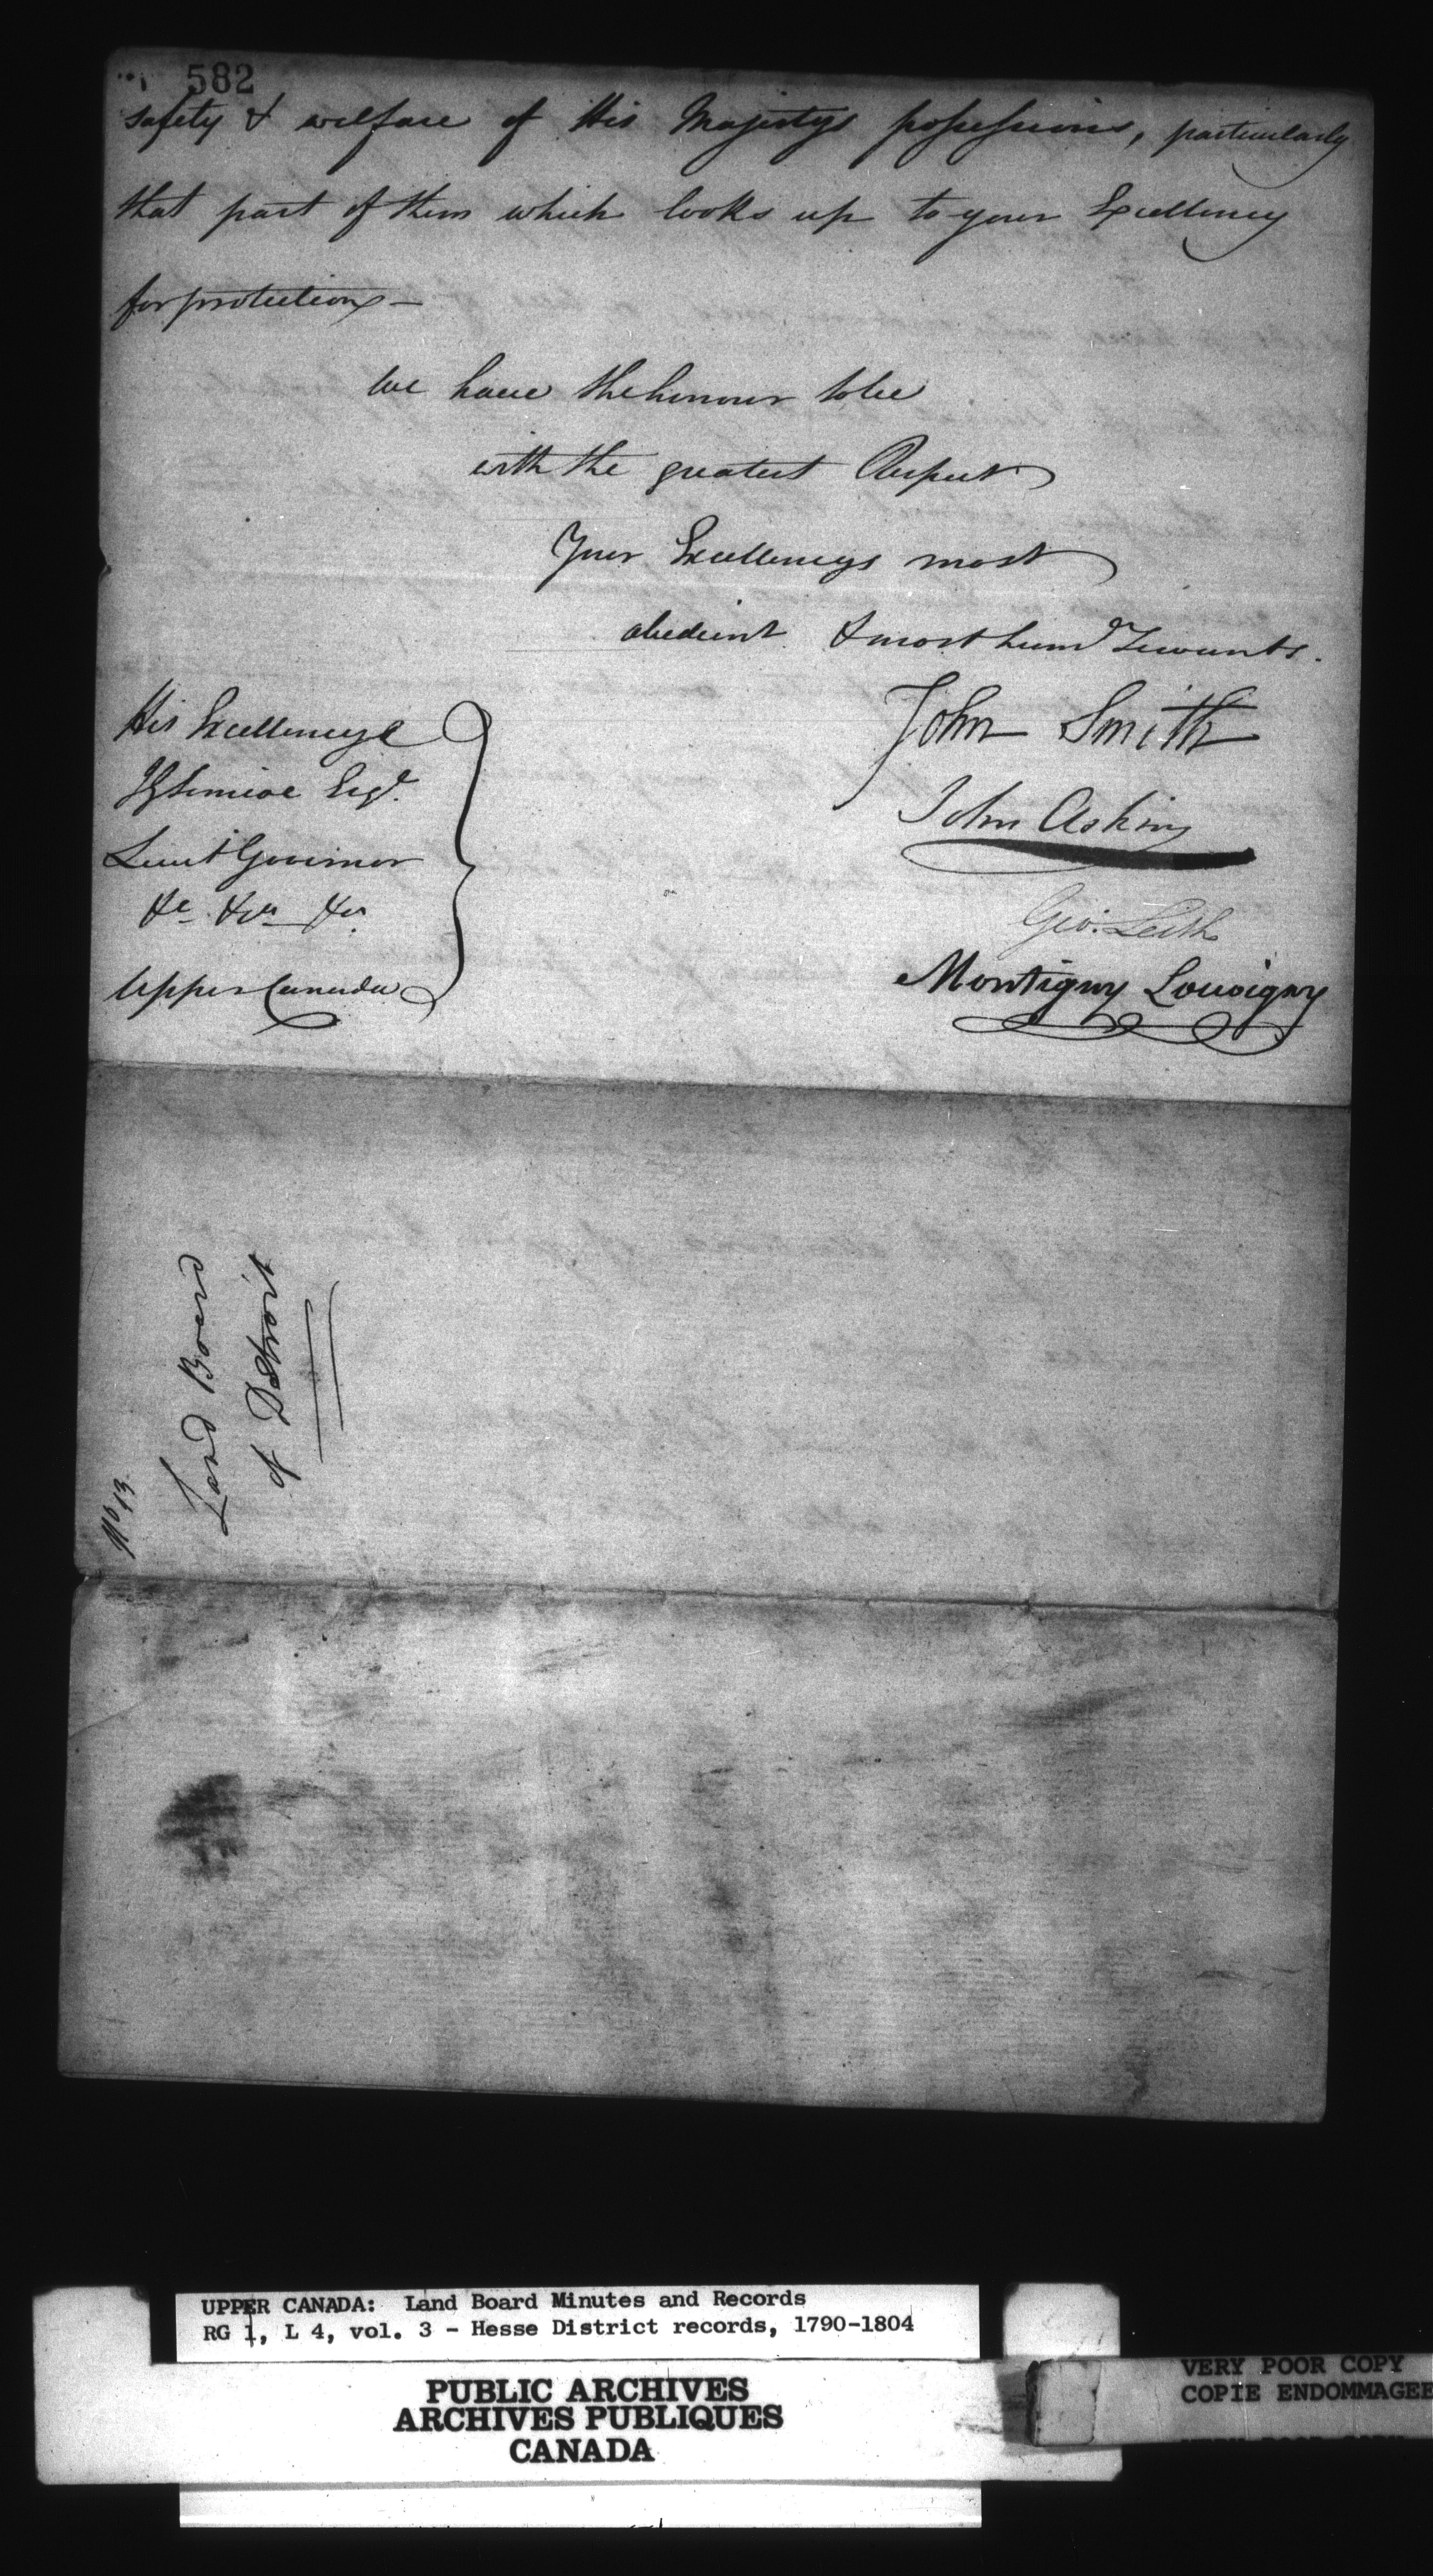 582
safety & welfare of His Majestys possessions, particularly
that part of them which looks up to your Excellency
for protection —
We have the honour to be
with the greatest Respect
Your Excellencys most
obedient & most hum Servants.
His Excellency
J G Simcoe Esqr.
Lieut Governor
&c &ca &ca
Upper Canada
John Smith
John Askin
Geo: Leith
Montigny Louvigny
No 13
Land Board
of Detroit
UPPER CANADA: Land Board Minutes and Records
RG 1, L 4, vol. 3 - Hesse District records, 1790-1804
PUBLIC ARCHIVES
ARCHIVES PUBLIQUES
CANADA
VERY POOR COPY
COPIE ENDOMMAGEE